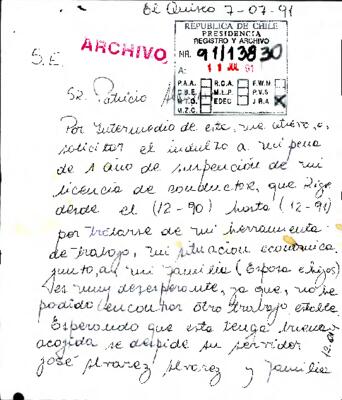 El Quisco 7-07-91
REPUBLICA DE CHILE
PRESIDENCIA
REGISTRO Y ARCHIVO
NR. 91/13830
A: 11 JUL 91
P.A.A. R.C.A. F.W.M.
C.B.E. M.L.P. P.V.S.
M.T.O. EDEC J.R.A. X
M.Z.C.
ARCHIVO
S.E.
Sr. Patricio
Por intermedio de esta, me atrevo, a
solicitar el indulto a mi pena
de 1 año de suspención de mi
licencia de conductor, que rige
desde el (12-90) hasta (12-91)
por tratarse de mi herramienta
de trabajo, mi situacion económica
junto, a mi familia (Esposa e hijos)
es muy desesperante, ya que, no he
podido encontrar otro trabajo estable.
Esperando que esta tenga buena
acojida se despide su servidor
José Alvarez Alvarez y familia